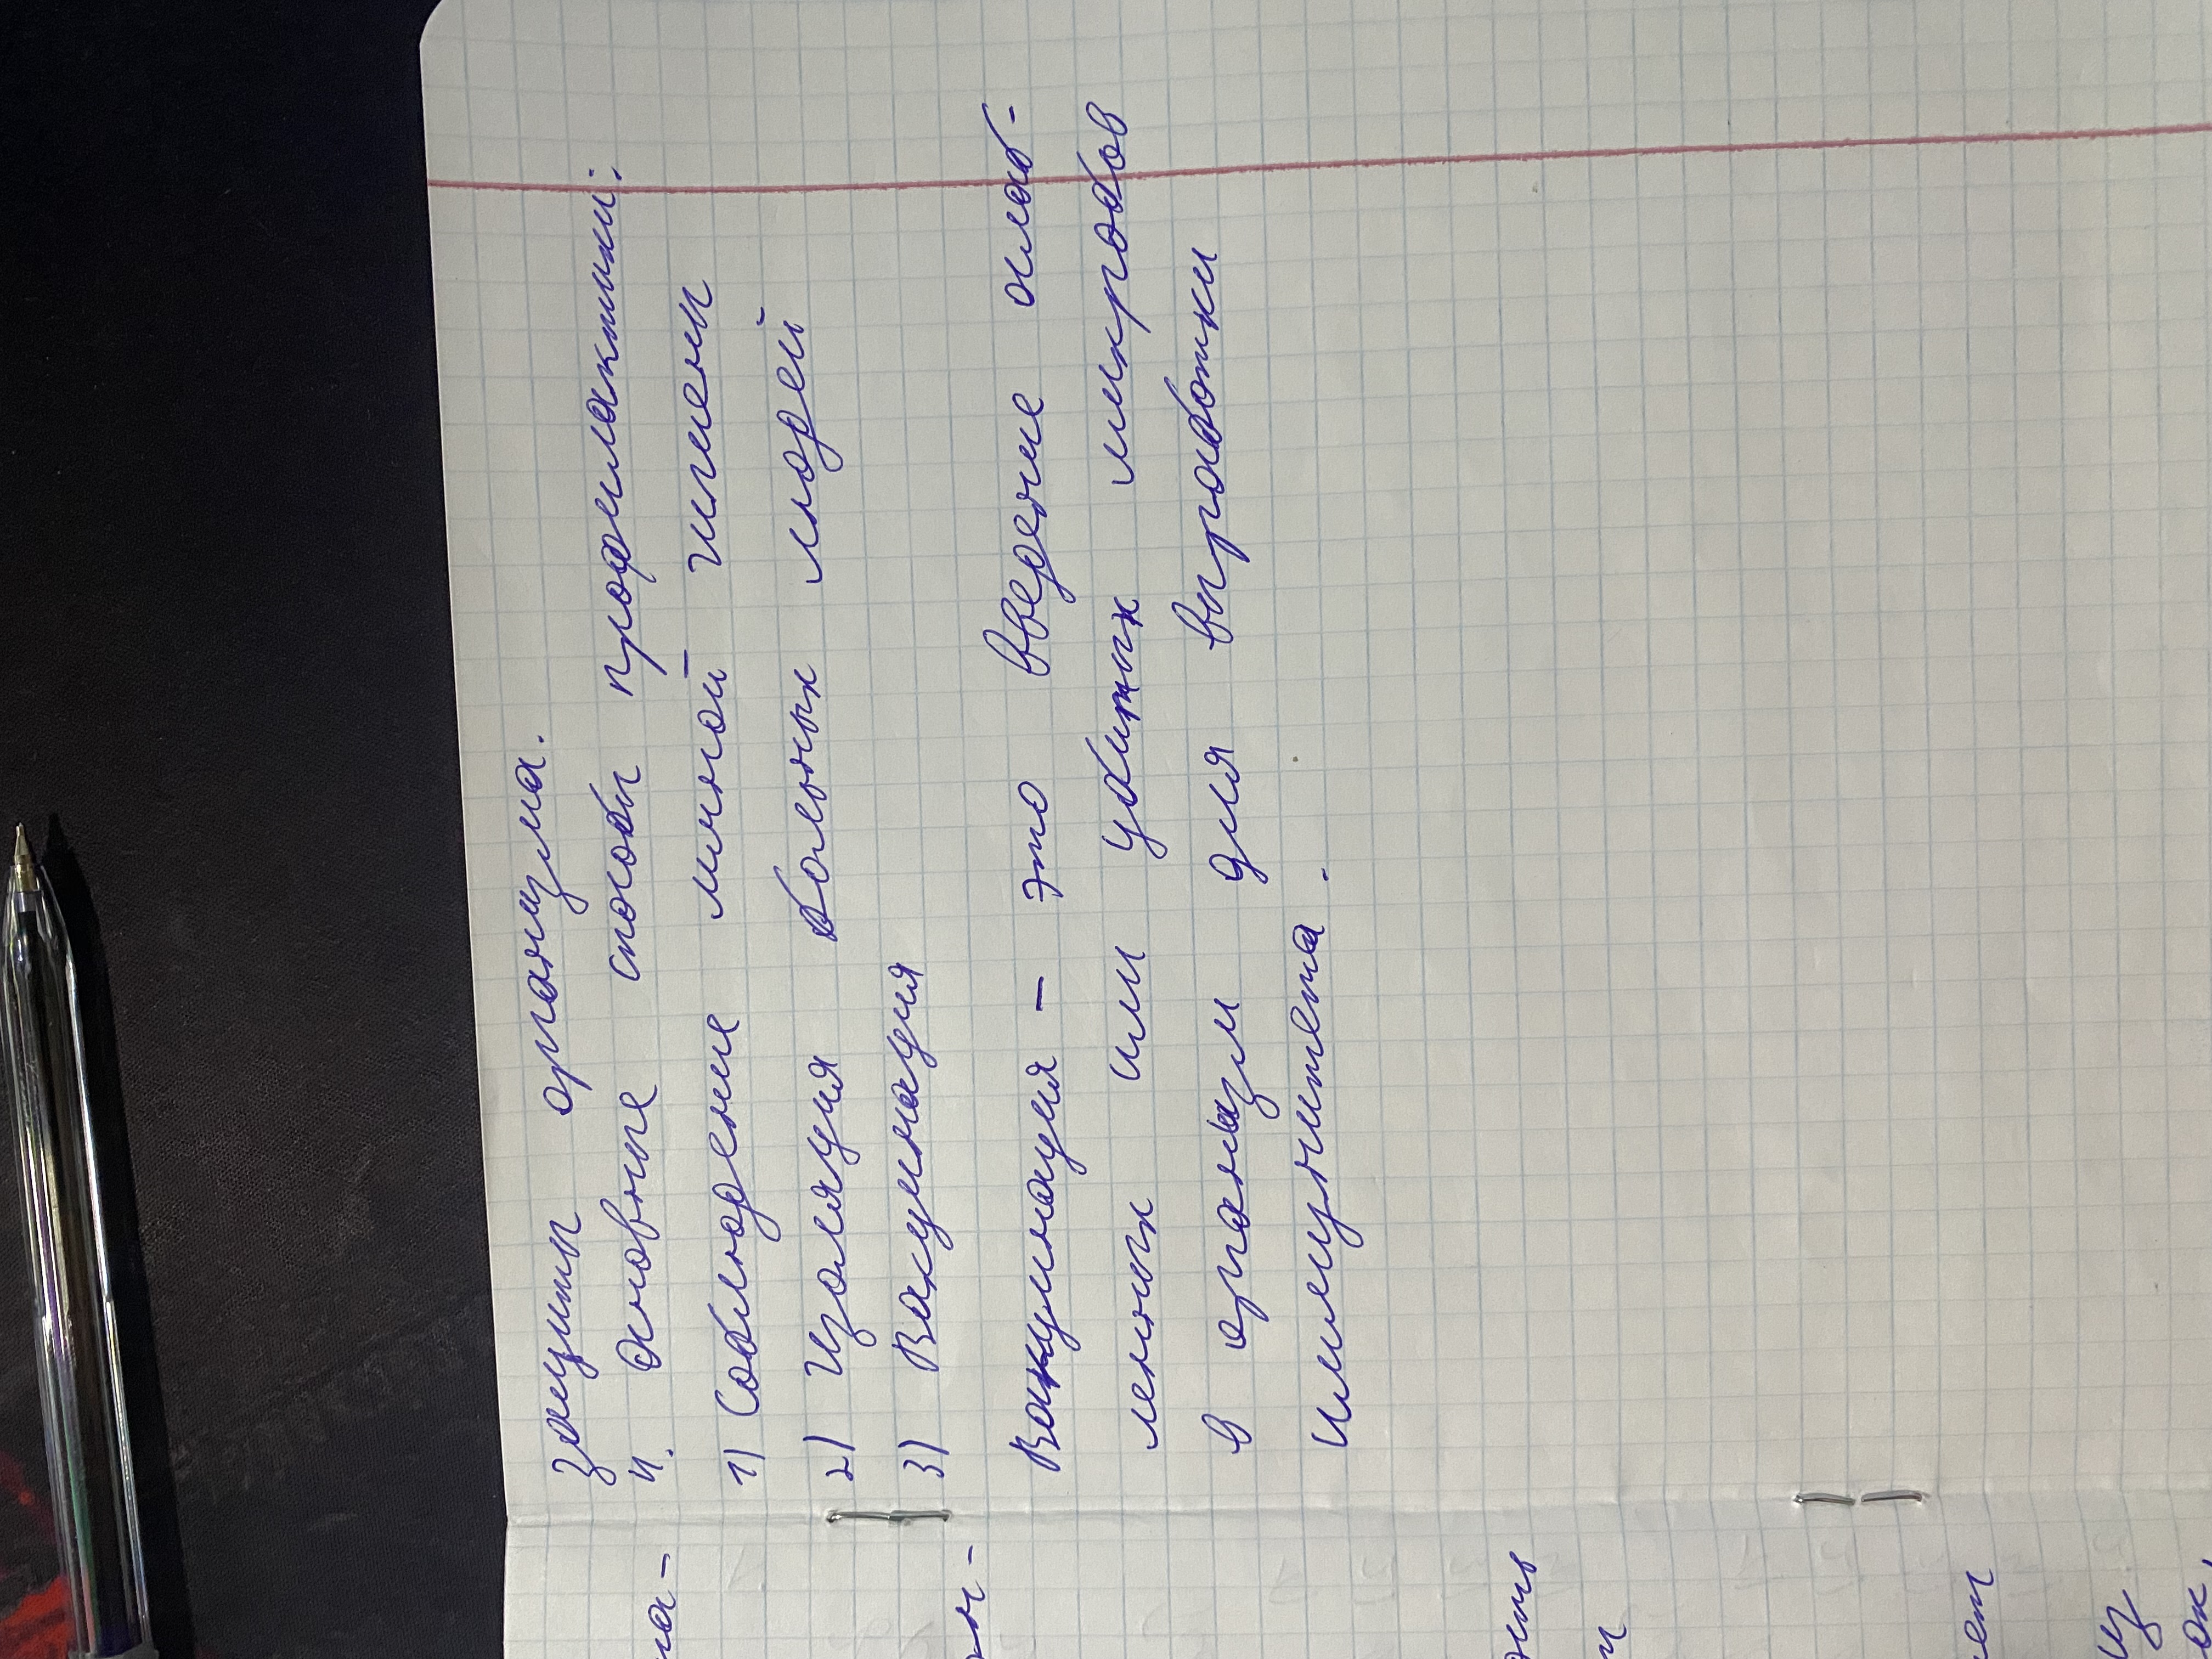 защиты организма.
4. Основные способы профилактики:
1) Соблюдение личной гигиены
2) Изоляция больных людей
3) Вакцинация
Вакцинация – это введение ослаб-
ленных или убитых микробов
в организм для выработки
иммунитета.